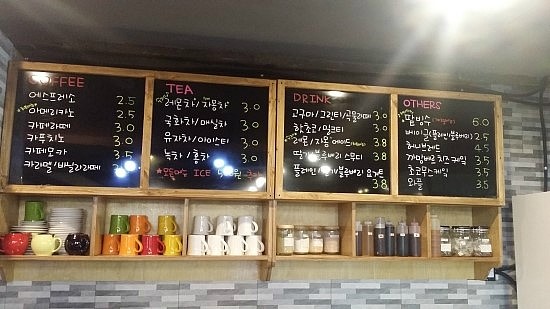 COFFEE
에스프레소 2.5
아메리카노 2.5
카페라떼 3.0
카푸치노 3.0
카페모카 3.5
카라멜/바닐라라떼
TEA
레몬차/자몽차 3.0
국화차/매실차 3.0
유자차/아이스티 3.0
녹차/홍차 3.0
ICE
DRINK
고구마/그린티/곡물라떼 3.0
핫초코/밀크티 3.0
레몬/자몽에이드 3.8
딸기/블루베리 스무디 3.8
플레인/딸기/블루베리 요거트 3.8
OTHERS
팥빙수 6.0
베이글(플레인/블루베리) 2.5
허니브레드 4.5
까망베르치즈케익 3.5
초코무스케익 3.5
와플 3.5